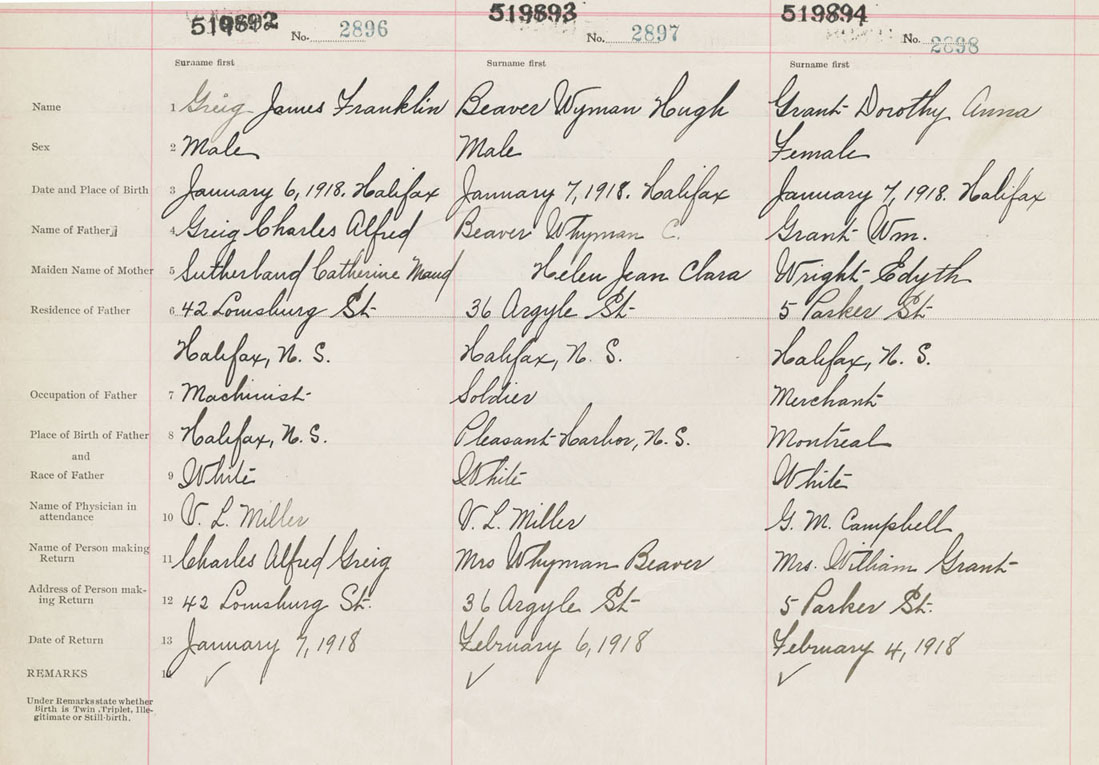 519892 519893 519894
No. 2896 No. 2897 No. 2898
Surname first Surname first Surname first
Name 1 Greig James Franklin Beaver Wyman Hugh Grant Dorothy Anna
Sex 2 Male Male Female
Date and Place of Birth 3 January 6, 1918. Halifax January 7, 1918. Halifax January 7, 1918. Halifax
Name of Father 4 Greig Charles Alfred Beaver Whyman C. Grant Wm.
Maiden Name of Mother 5 Sutherland Catherine Maud Helen Jean Clara Wright Edyth
Residence of Father 6 42 Louisburg St 36 Argyle St 5 Parker St
Halifax, N. S. Halifax, N. S. Halifax, N. S.
Occupation of Father 7 Machinist Soldier Merchant
Place of Birth of Father 8 Halifax, N. S. Pleasant Harbor, N. S. Montreal
and
Race of Father 9 White White White
Name of Physician in
attendance 10 V. L. Miller V. L. Miller G. M. Campbell
Name of Person making
Return 11 Charles Alfred Greig Mrs Whyman Beaver Mrs. William Grant
Address of Person mak-
ing Return 12 42 Louisburg St. 36 Argyle St 5 Parker St.
Date of Return 13 January 7, 1918 February 6, 1918 February 4, 1918
REMARKS 14 ✓ ✓ ✓
Under Remarks state whether
Birth is Twin, Triplet, Ille-
gitimate or Still-birth.